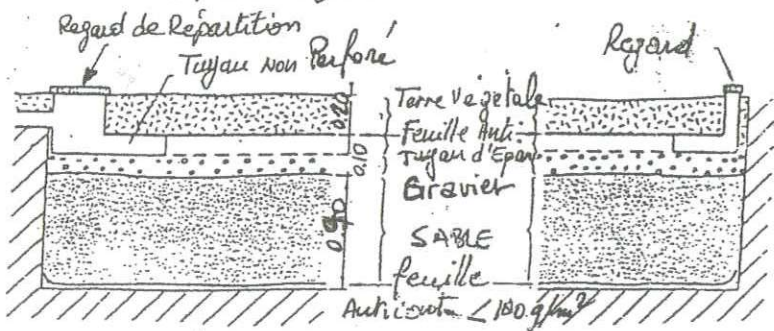 Regard de Répartition
Tuyau Non Perforé
Regard
0.20
Terre Végétale
Feuille Anti-
0.10
Tuyau d'Epan
Gravier
SABLE
feuille
100 g/m²